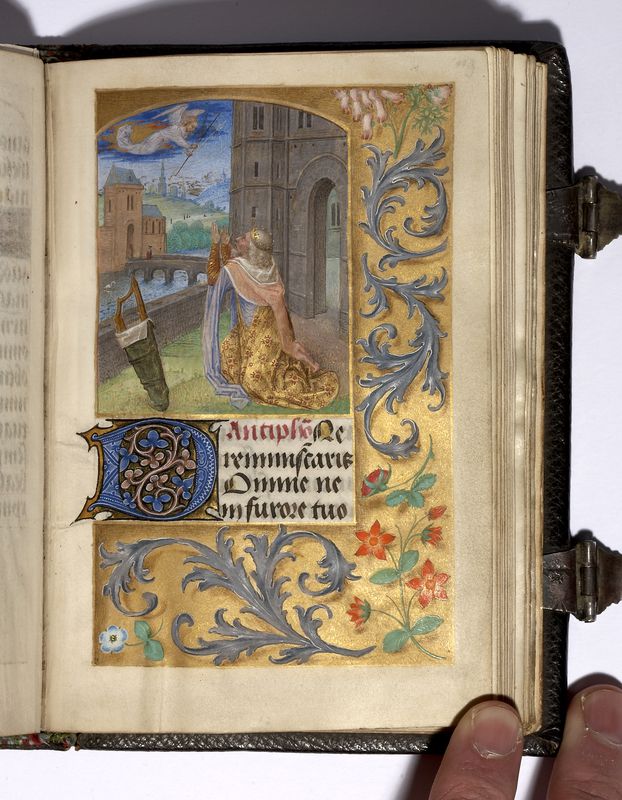 Antiphō Ne
reminiscaris
D Omine ne
in furore tuo